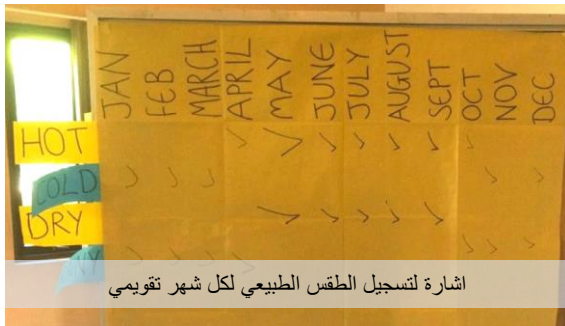 JAN FEB MARCH APRIL MAY JUNE JULY AUGUST SEPT OCT NOV DEC
HOT
COLD
DRY
NY
اشارة لتسجيل الطقس الطبيعي لكل شهر تقويمي